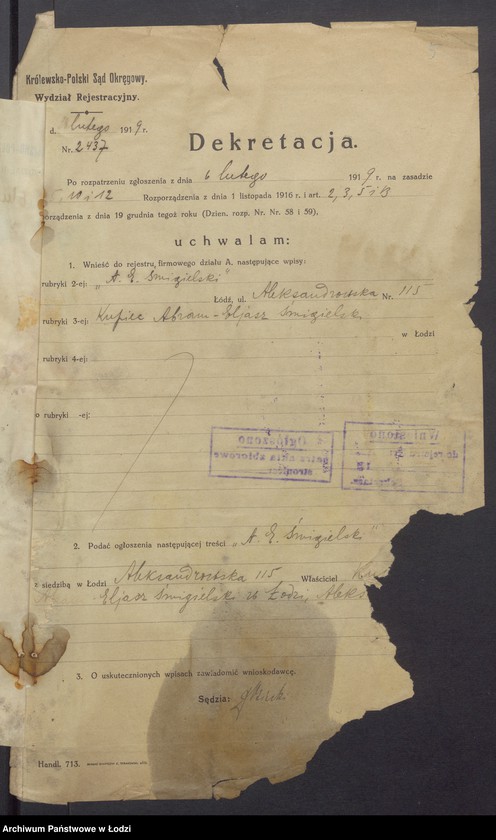 Królewsko-Polski Sąd Okręgowy.
Wydział Rejestracyjny.
d. lutego 1919 r.
Nr. 2437
Dekretacja.
Po rozpatrzeniu zgłoszenia z dnia 6 lutego 1919 r. na zasadzie
10 i 12 Rozporządzenia z dnia 1 listopada 1916 r. i art. 2, 3, 5 i 13
porządzenia z dnia 19 grudnia tegoż roku (Dzien. rozp. Nr. Nr. 58 i 59),
uchwalam:
1. Wnieść do rejestru firmowego działu A. następujące wpisy:
rubryki 2-ej: „A. E. Śmigielski"
Łódź, ul. Aleksandrowska Nr. 115
rubryki 3-ej: Kupiec Abram-Eljasz Śmigielski
w Łodzi
rubryki 4-ej:
o rubryki -ej:
Ogłoszono
Wniesiono
2. Podać ogłoszenia następującej treści „A. E. Śmigielski"
z siedzibą w Łodzi Aleksandrowska 115 Właściciel
Eljasz Śmigielski w Łodzi, Aleks
3. O uskutecznionych wpisach zawiadomić wnioskodawcę.
Sędzia:
Handl. 713.
Archiwum Państwowe w Łodzi